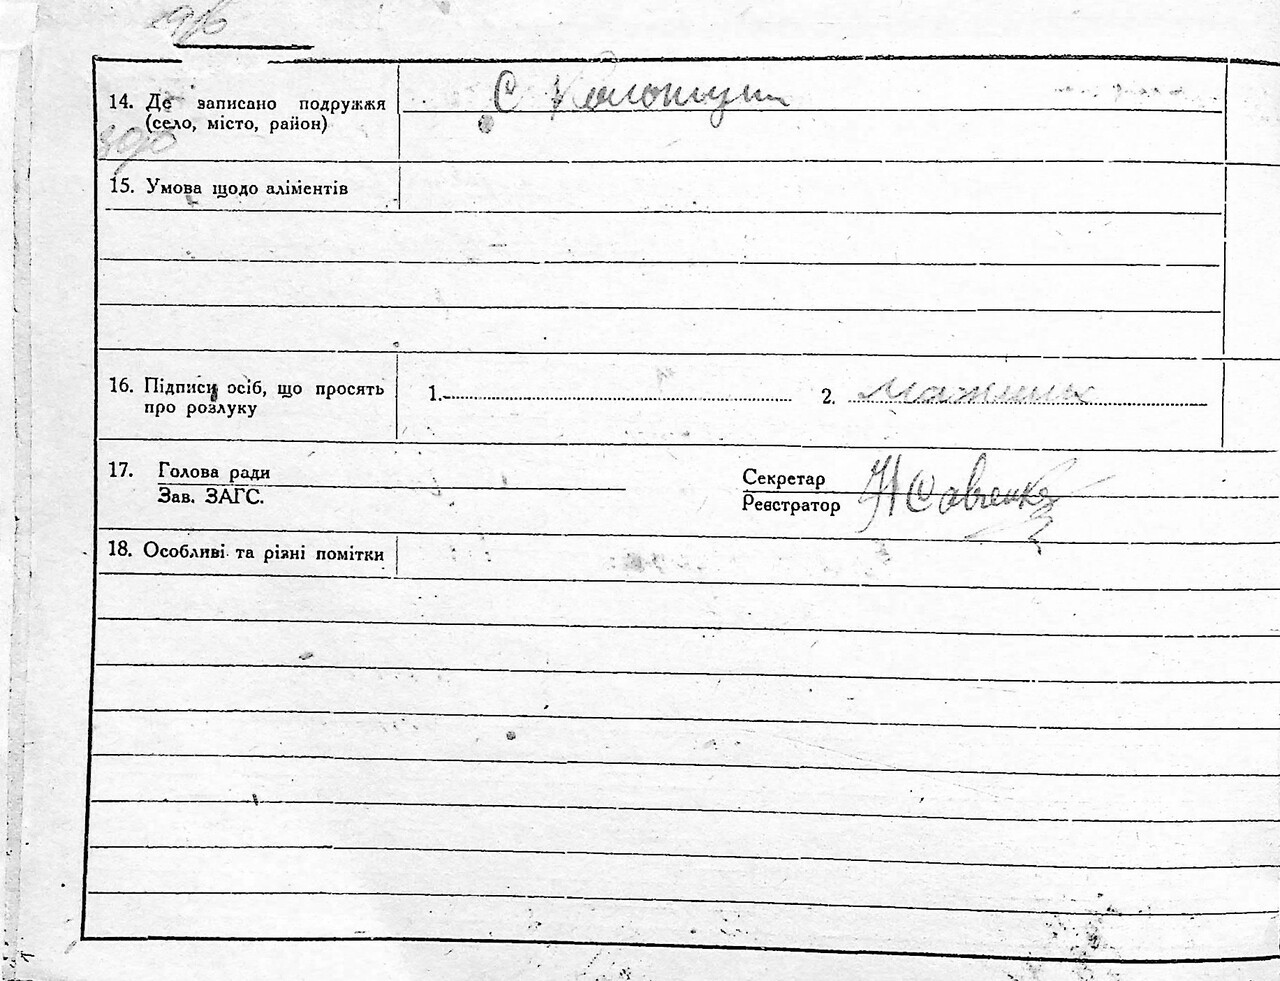 14. Де записано подружжя
(село, місто, район)
С
15. Умова щодо аліментів
16. Підписи осіб, що просять
про розлуку
1.
2.
17. Голова ради
Зав. ЗАГС.
Секретар
Реєстратор
Савченко
18. Особливі та різні помітки